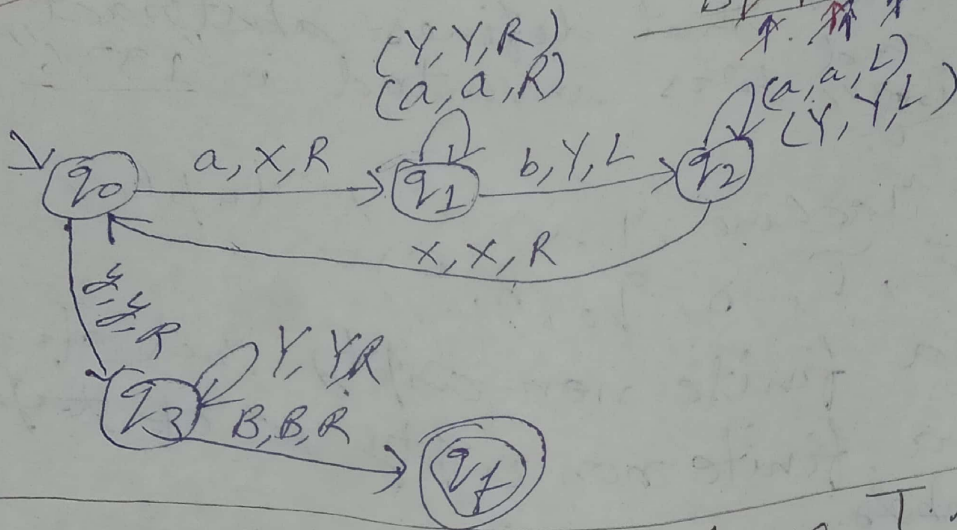 (Y, Y, R)
(a, a, R)
(a, a, L)
(Y, Y, L)
q0
a, X, R
q1
b, Y, L
q2
X, X, R
y, y, R
Y, Y, R
q3
B, B, R
qf